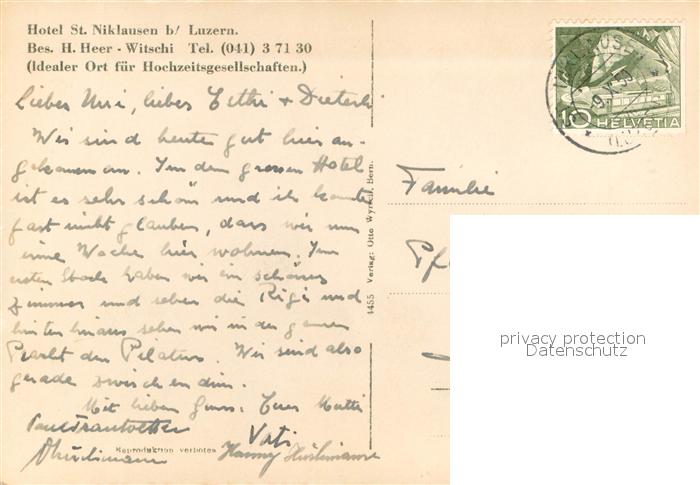 Hotel St. Niklausen b/ Luzern.
Bes. H. Heer - Witschi Tel. (041) 3 71 30
(Idealer Ort für Hochzeitsgesellschaften.)
Lieber Urri, liebes Esthi + Dieterli
Wir sind heute gut hier an-
gekommen. In dem grossen Hotel
ist es sehr schön und ich konnte
fast nicht glauben, dass wir nun
eine Woche hier wohnen. Im
ersten Stock haben wir ein schönes
Zimmer und sehen die Rigi und
hinten hinaus sehen wir in der ganzen
Pracht den Pilatus. Wir sind also
gerade zwischendrin.
Mit lieben Gruss. Eure Mutti
Vati
Hanny Hürlimann
Reproduktion verboten
4455 Verlag: Otto Wyrsch, Bern.
10 HELVETIA
Familie
Pf
privacy protection
Datenschutz